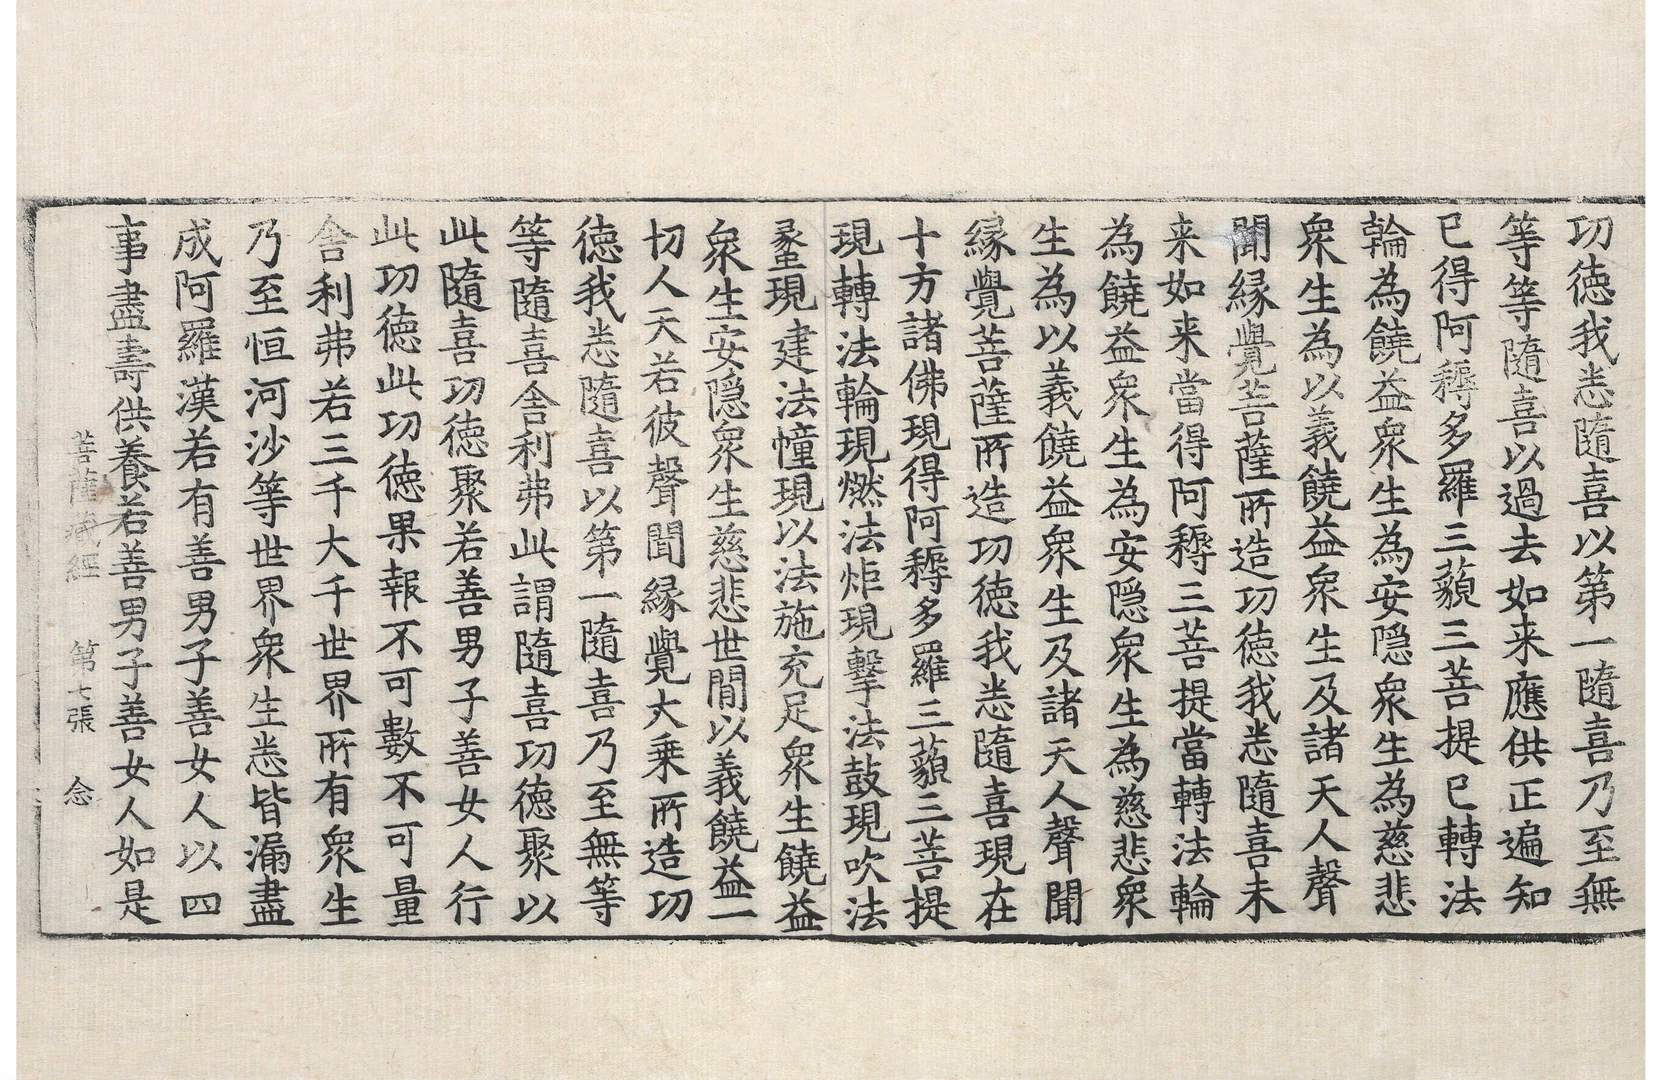 功德我悉隨喜以第一隨喜乃至無
等等隨喜以過去如来應供正遍知
已得阿耨多羅三藐三菩提已轉法
輪為饒益眾生為安隱眾生為慈悲
眾生為以義饒益眾生及諸天人聲
聞緣覺菩薩所造功德我悉隨喜未
来如来當得阿耨三菩提當轉法輪
為饒益眾生為安隱眾生為慈悲眾
生為以義饒益眾生及諸天人聲聞
緣覺菩薩所造功德我悉隨喜現在
十方諸佛現得阿耨多羅三藐三菩提
現轉法輪現燃法炬現擊法鼓現吹法
蠡現建法幢現以法施充足眾生饒益
眾生安隱眾生慈悲世間以義饒益一
切人天若彼聲聞緣覺大乗所造功
德我悉隨喜以第一隨喜乃至無等
等隨喜舍利弗此謂隨喜功德聚以
此隨喜功德聚若善男子善女人行
此功德此功德果報不可數不可量
舍利弗若三千大千世界所有眾生
乃至恒河沙等世界眾生悉皆漏盡
成阿羅漢若有善男子善女人以四
事盡壽供養若善男子善女人如是
菩薩藏經 第七張 念